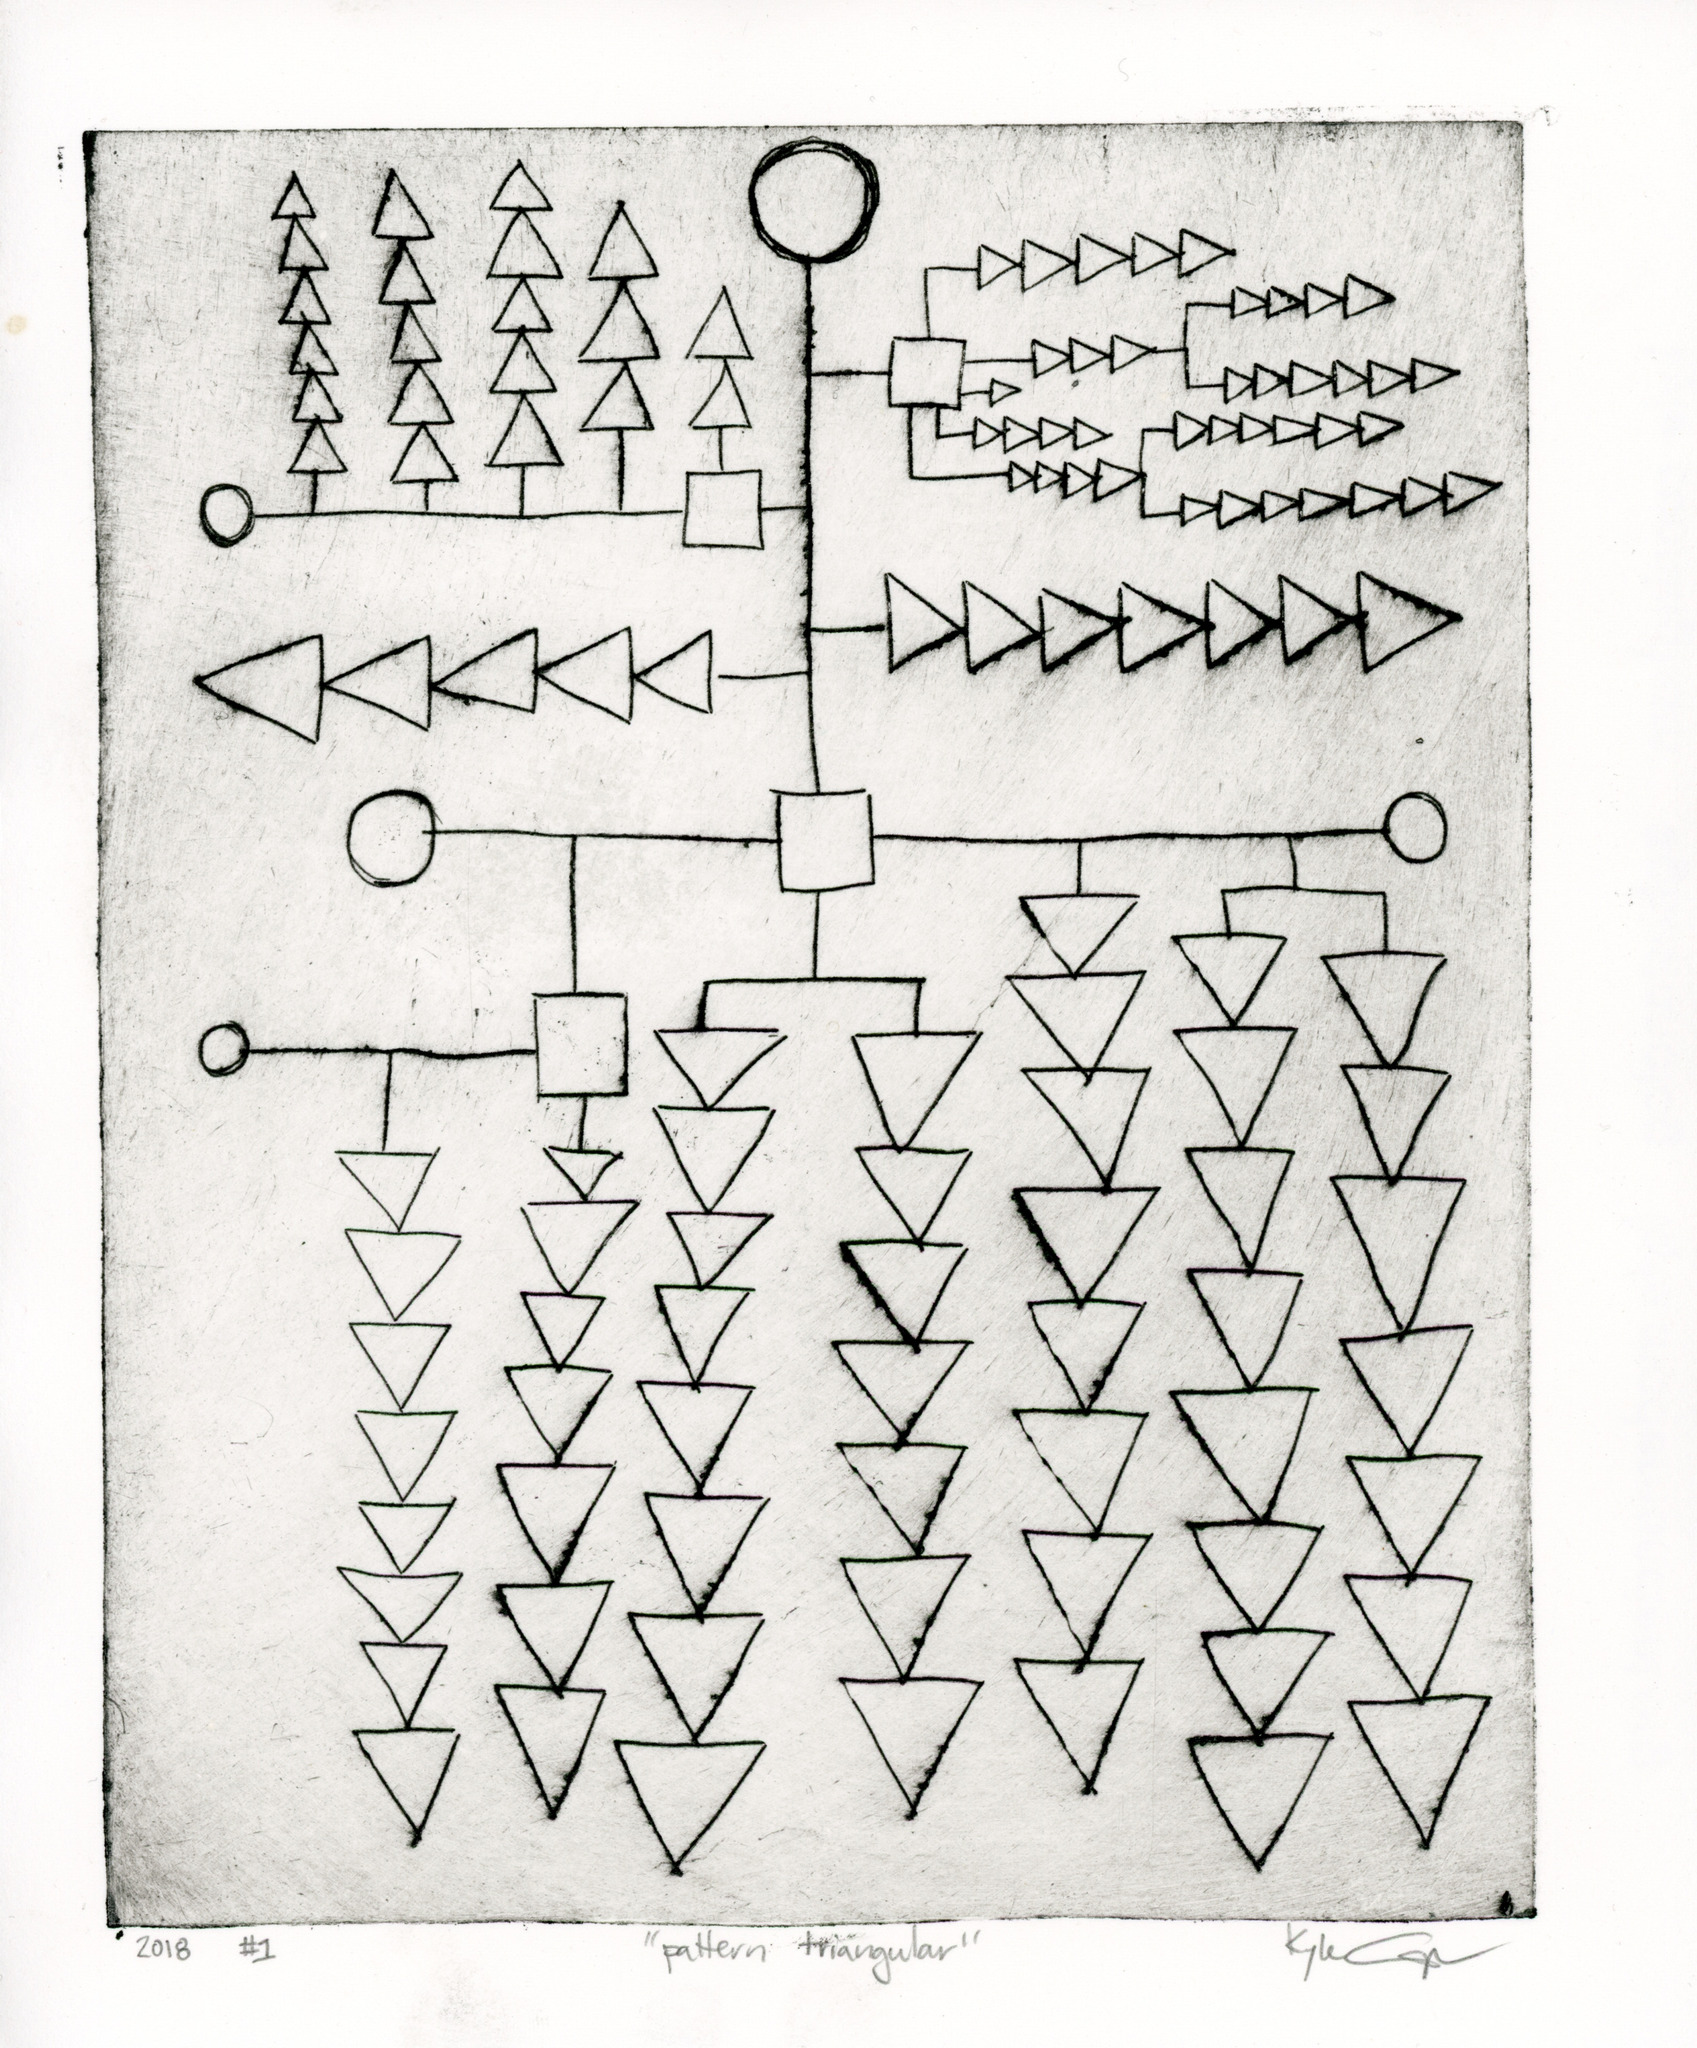 2018 #1 "pattern triangular" Kyle